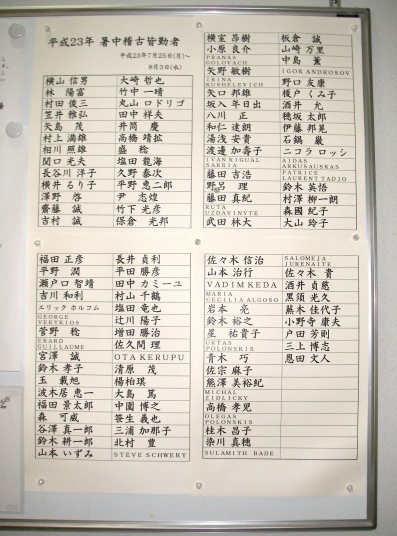 平成23年 暑中稽古皆勤者
平成23年7月25日(月)~
8月3日(水)
横山 信男 大崎 哲也
林 陽富 竹中 一晴
村田 俊三 丸山 ロドリゴ
笠井 雅弘 田中 祥夫
矢島 茂 井筒 慶
村上 満雄 高橋 靖拡
相川 照雄 盛 稔
関口 光夫 塩田 龍海
長谷川 洋子 久野 泰次
横井 るり子 平野 恵二郎
澤野 啓 尹 志煌
齋藤 誠 竹下 光彦
吉村 誠 保倉 光邦
横室 昂樹 板倉 誠
小原 良介 山崎 万里
PRANAS GOLOVACH 中島 薫
矢野 敏樹 IGOR ANDROSOV
IRINA KUSHELEVICH 野口 友康
矢口 邦雄 榎戸 くみ子
坂入 年日出 酒井 允
八川 正 穂坂 太郎
和仁 達朗 伊藤 邦晃
湯浅 安貴 石鍋 巌
渡邊 加壽子 ニコラ ロッシ
IVAN RIGUAL SARRIA AIDAS ARKUSAUSKAS
藤田 吉浩 PATRICE LAURENT TADJO
野呂 理 鈴木 英悟
藤田 真紀 村澤 柳一朗
RUTA UZDAVINYTE 森國 紀子
武田 林大 大山 玲子
福田 正彦 長井 貞利
平野 潤 平田 勝彦
瀬戸口 智靖 田中 カミーユ
吉川 和利 村山 千鶴
エリック ホルコム 塩田 竜也
GEORGE VERYKIOS 辻川 陽子
菅野 稔 増田 勝治
ERARD GUILLAUME 佐久間 理
宮澤 誠 OTA KERUPU
鈴木 孝子 清原 茂
玉 載旭 楊柏琪
波木居 恵一 大島 篤
福田 景太郎 中園 博之
森 可威 笹生 義也
谷澤 真一郎 三浦 加那子
鈴木 耕一郎 北村 豊
山本 いずみ STEVE SCHWERY
佐々木 信治 SALOMEJA JURENAITE
山本 治行 佐々木 貴
VADIM KEDA 酒井 貞慈
MARIA CECILIA ALGOSO 黒須 光久
岩本 亮 藁木 佳代子
鈴木 裕之 小野寺 康夫
星 祐貴子 戸田 芳則
URTAS POLONSKIS 三上 博志
青木 巧 恩田 文人
佐宗 麻子
熊澤 美裕紀
MICHAL ZIDLICKY
高橋 孝児
OLEGAS POLONSKIS
桂木 昌子
染川 真穂
SULAMITH BADE